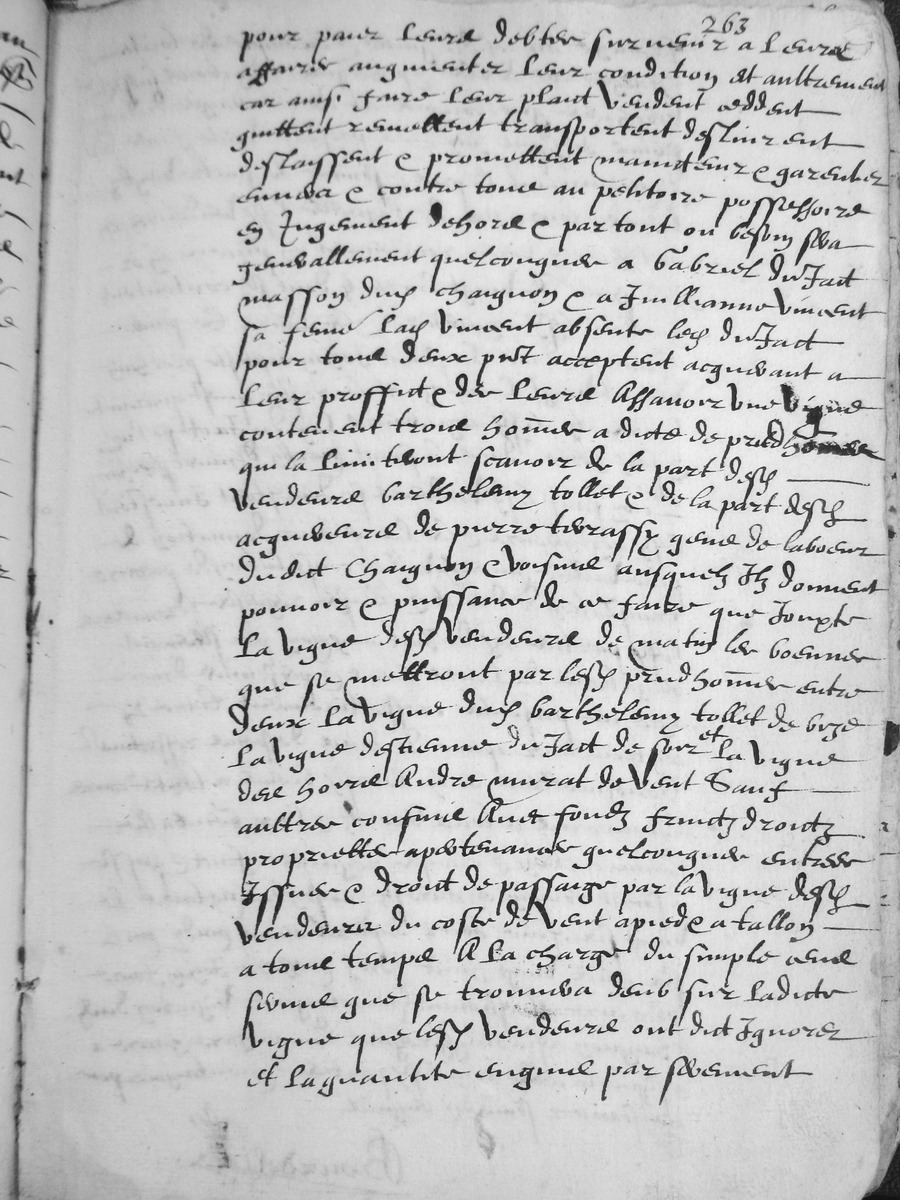 263
pour paier leurs debtes survenir a leurs
affaires augmenter leur condition et aultrement
car ainsi faire leur plaict vendent ceddent
quittent remettent transportent deslivrent
deslaissent & promettent maintenir & garentir
envers & contre tous au petitoire possessoire
en Jugement dehors & partout ou besoin sera
generallement quelconques a Gabriel du Jact
masson dud chaignon & a Jullianne vincent
sa feme lad vincent absente led du Jact
pour tous deux pnt acceptent acquerant a
leur proffict & des leurs Assavoir une vigne
contenent trois homes a dicte de prudhomes
qui la limiteront scavoir de la part desd
vendeurs barthelemy tollet & de la part desd
acquereurs de pierre terrassy gens de labeur
dudict Chaignon & voisins ausquelz Ilz donnent
pouvoir & puissance de ce faire que Jouxte
la vigne desd vendeurs de matin les boennes
que se mettront par lesd prudhomes entre
deux la vigne dud barthelemy tollet de bize
la vigne destienne du Jact de soir et la vigne
des hoirs Andre murat de vent Sauf
aultres confins Avec fondz fruictz droictz
proprietes apertenances quelconques entrees
Issues & droit de passaige par la vigne desd
vendeurs du coste de vent a pied & a tallon
a tous temps A la charge du simple cens
servis que se trouvera deub sur ladicte
vigne que lesd vendeurs ont dict Ignorer
et la quantite enquis par serement